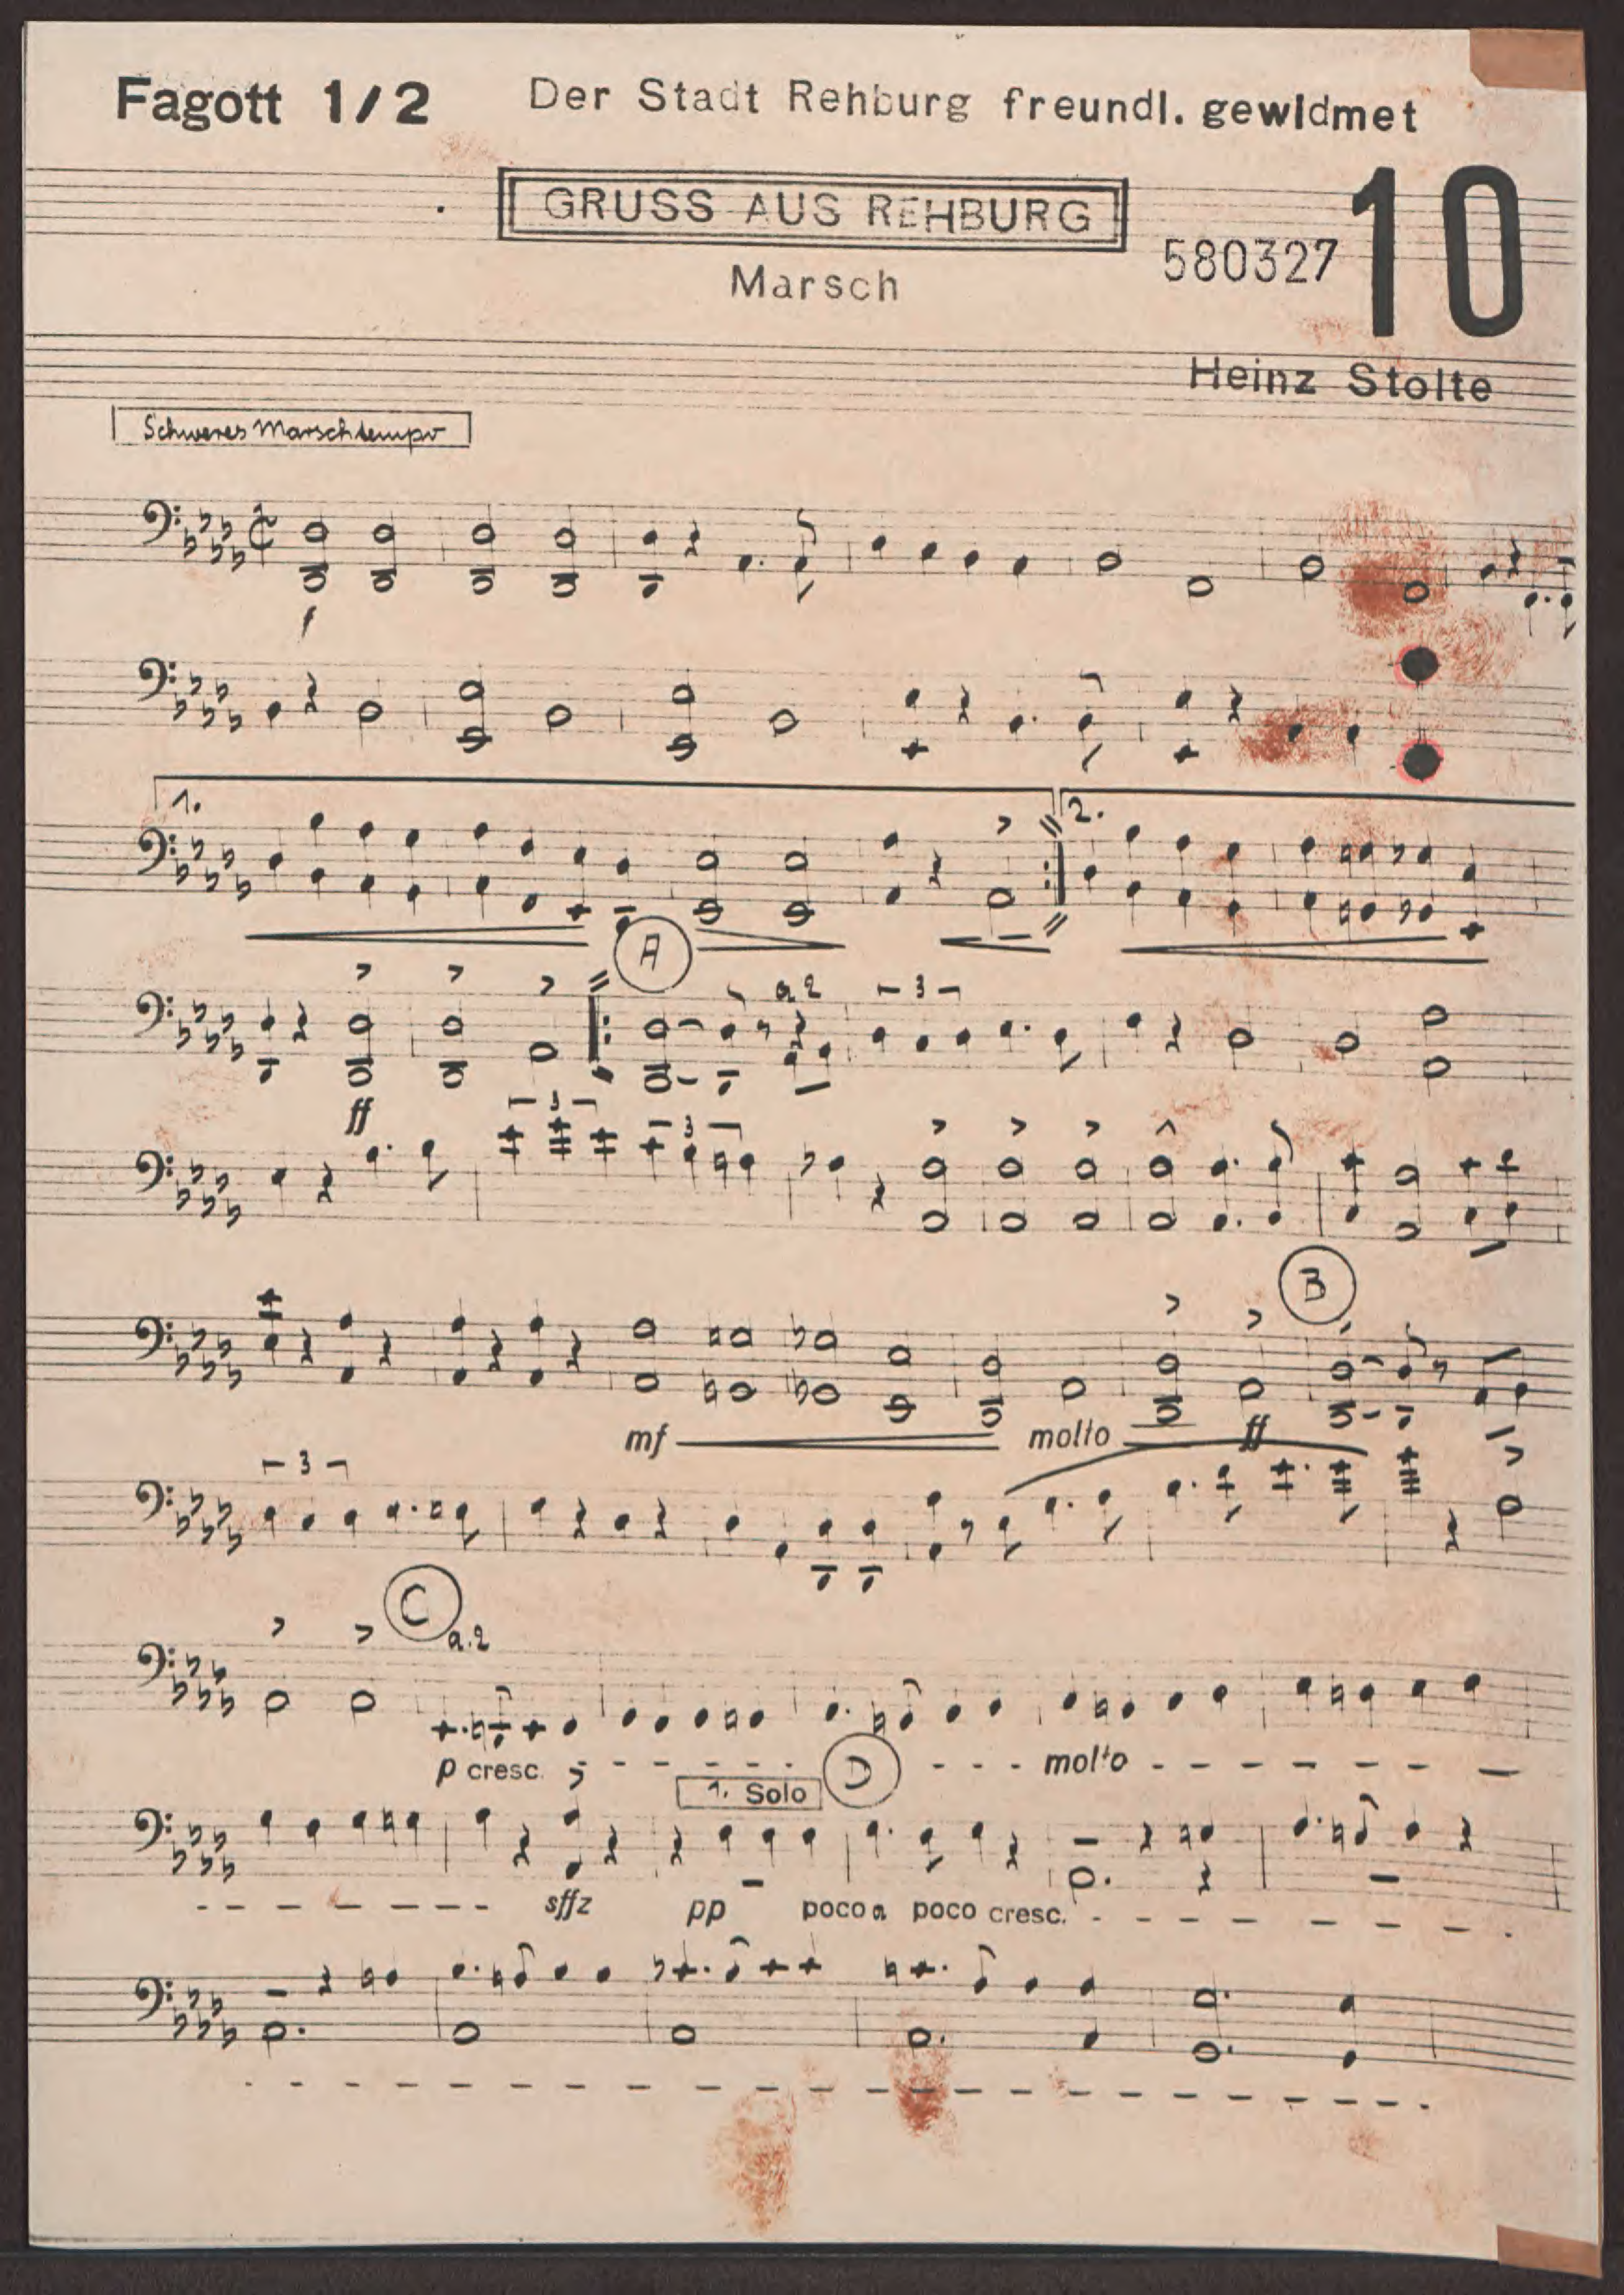 Fagott 1/2 Der Stadt Rehburg freundl. gewidmet
GRUSS AUS REHBURG
10
580327
Marsch
Heinz Stolte
Schweres Marschtempo
f
1. 2.
A
a2 3
ff
3 3
B
mf molto ff
3
C
a.2
p cresc. molto
1. Solo D
sffz pp poco a poco cresc.